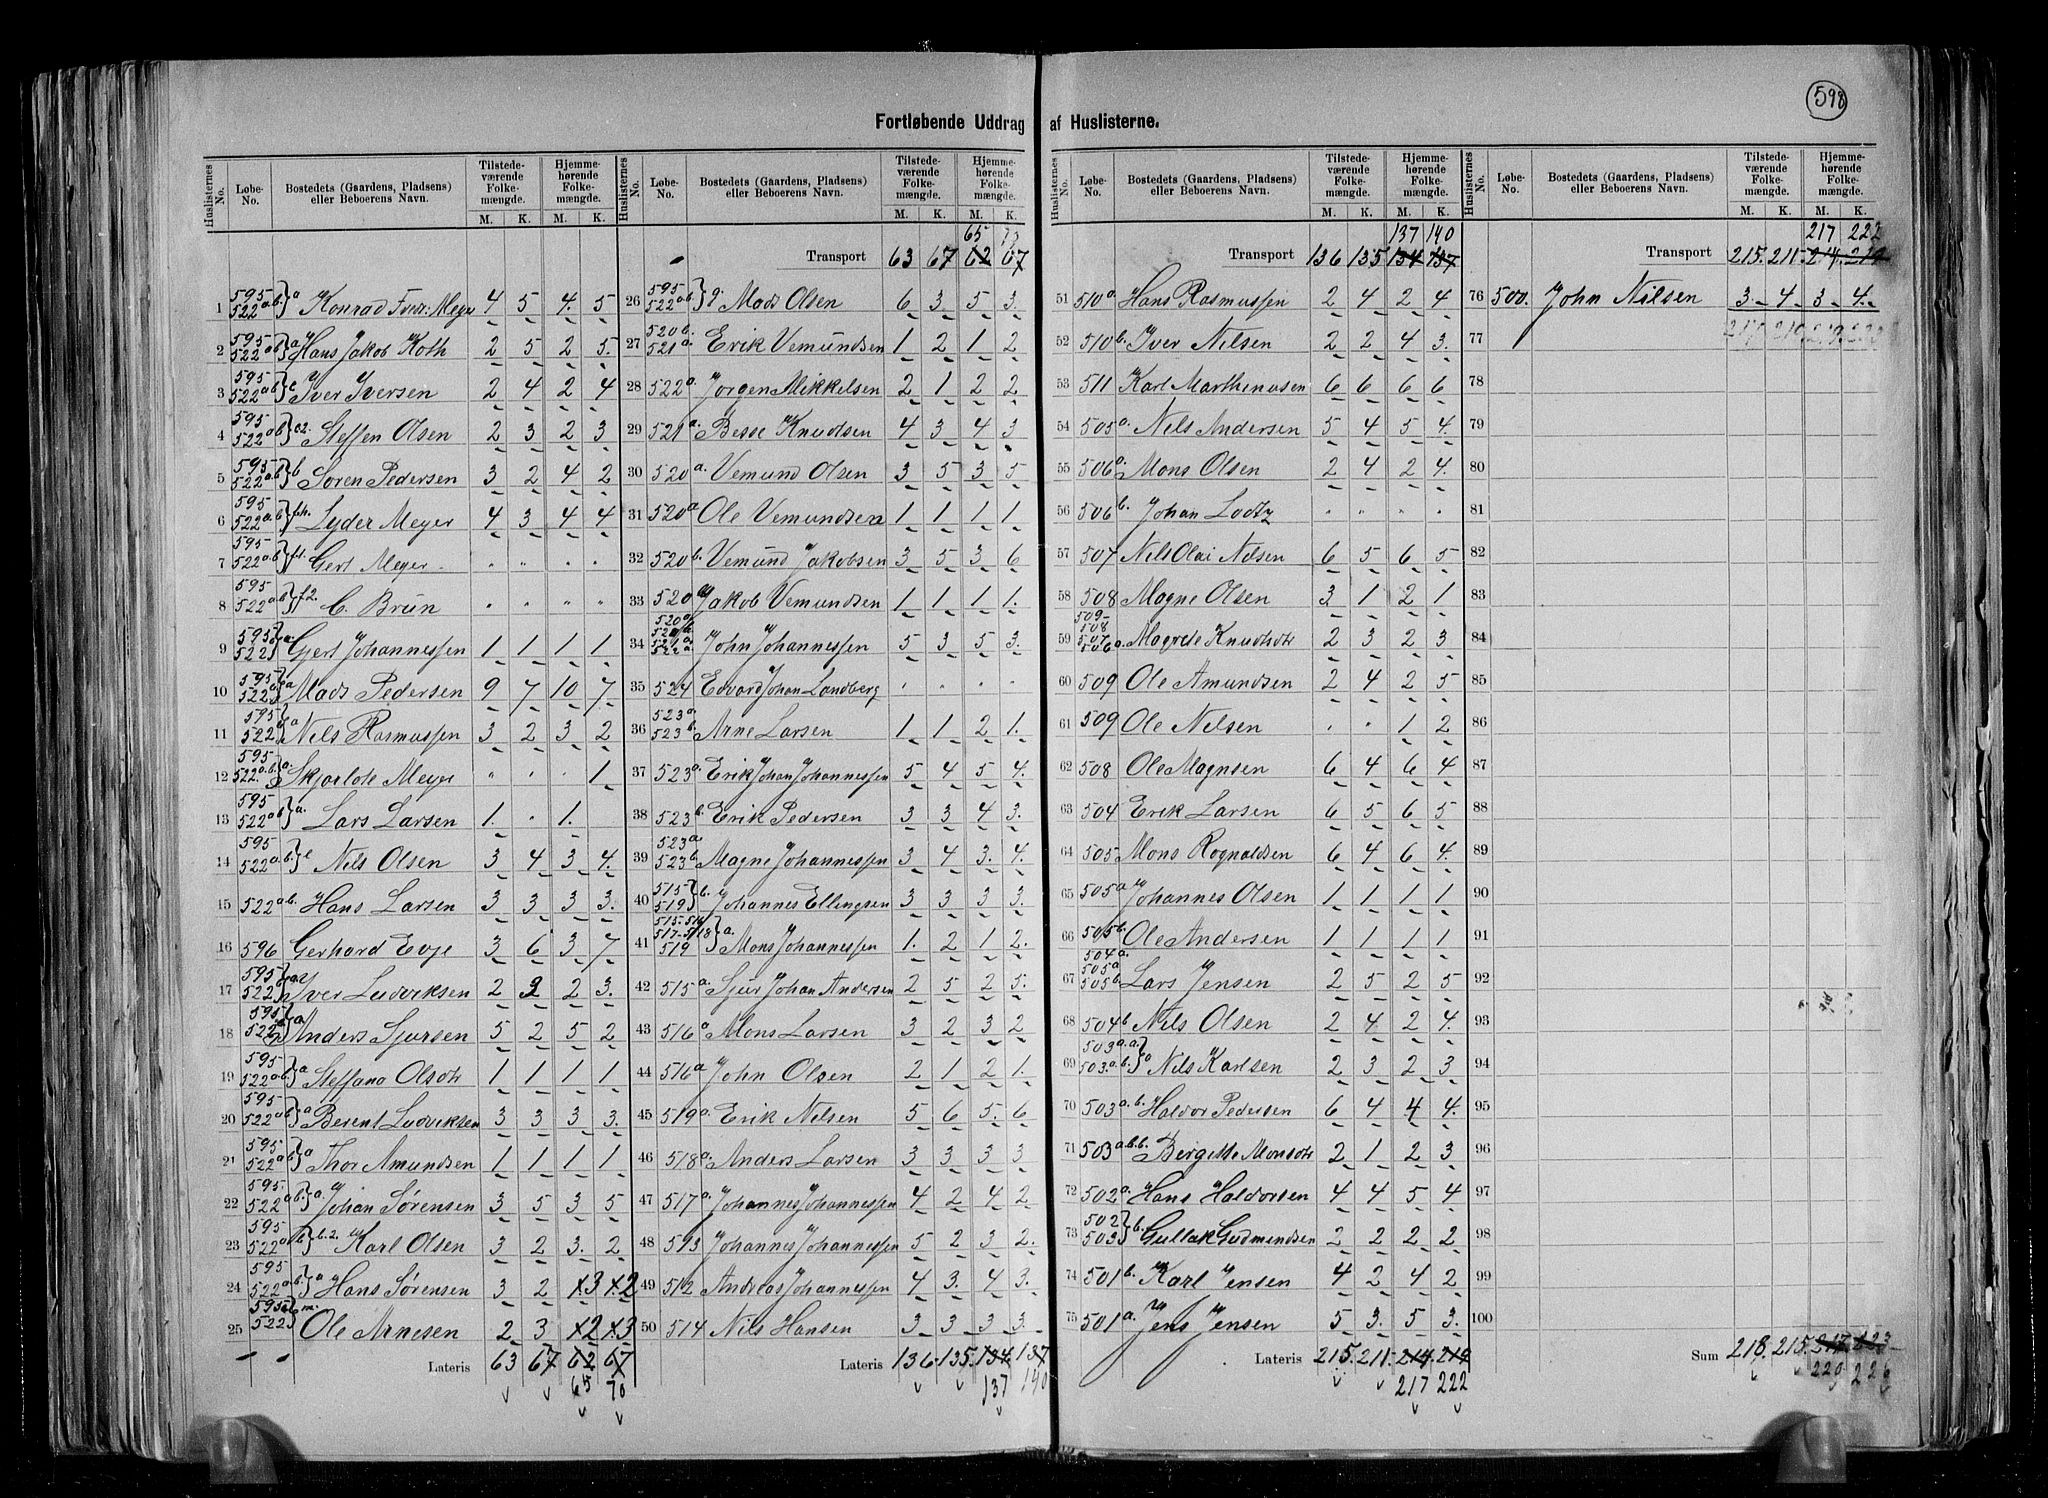 598
Fortløbende Uddrag af Huslisterne.
Huslisternes No. Løbe-No. Bostedets (Gaardens, Pladsens) eller Beboerens Navn. Tilstedeværende Folkemængde. M. K. Hjemmehørende Folkemængde. M. K.
1 595 522 a.b. } a Konrad Fredr: Meyer 4 5 4. 5
2 595 522 a b } a Hans Jakob Roth 2 5 2 5.
3 595 522 a b } c Iver Iversen 2 4 2 4
4 595 522 a b } c2. Steffen Olsen 2 3 2 3
5 595 522 a.b } b Søren Pedersen 3 2 4 2
6 595 522 a.b } f.h. Lyder Meyer 4 3 4 4
7 595 522 a.b } f1. Gert Meyer. " " " "
8 595 522 a.b } f2. C. Brun " " " "
9 595 522 } a Gert Johannessen 1 1 1 1
10 595 522 } a Mads Pedersen 9 7 10 7
11 595 522 } a Nils Rasmussen 3 2 3 2
12 595 522 a.b. } a. Skjoldte Meyer " " " 1
13 595 522 a b } a. Lars Larsen 1. " 1.
14 595 522 a b. } e Nils Olsen 3 4 3 4.
15 522 a b. Hans Larsen 3 3 3 3.
16 596 Gerhard Evje 3 6 3 7
17 595 522 } a Iver Ludviksen 2 3 2 3.
18 595 522 } a Anders Sjursen 5 2 5 2
19 595 522 a.b } a Steffana Olsdtr 1 1 1 1
20 595 522 a b } a Berent Ludviksen 3 3 3 3.
21 595 522 a b } a Thor Amundsen 1 1 1 1
22 595 522 a b. } a. Johan Sørensen 3 5 3 5
23 595 522 a b } b.2. Karl Olsen 3 2 3. 2
24 595 522 a.b. } a Hans Sørensen 3 2 3 2
25 595 522 } m. Ole Arnesen 2 3 2 3
Lateris 63 67 62 67
65 70
Huslisternes No. Løbe-No. Bostedets (Gaardens, Pladsens) eller Beboerens Navn. Tilstedeværende Folkemængde. M. K. Hjemmehørende Folkemængde. M. K.
65 70
Transport 63 67 62 67
26 595 522 a.b } g. Mads Olsen 6 3 5 3.
27 520 b. 521 a. Erik Vemundsen 1 2 1 2
28 522 a. Jørgen Mikkelsen 2 1 2 2
29 521 a. Besse Knudsen 4 3 4 3
30 520 a. Vemund Olsen 3 5 3 5
31 520 a Ole Vemundsen 1 1 1 1
32 520 b. Vemund Jakobsen 3 5 3 6
33 520 a Jakob Vemundsen 1 1 1 1.
34 520 a 521 a. 522 a. John Johannessen 5 3 5 3.
35 524 Edvard Johan Landberg " " " "
36 523 a. 523 b. Arne Larsen 1 1 2 1.
37 523 a. Erik Johan Johannessen 5 4 5 4.
38 523 b. Erik Pedersen 3 3 4 3.
39 523 a 523 b. Magne Johannessen 3 4 3. 4.
40 515 519 } b. Johannes Ellingsen 3 3 3 3.
41 515-516 517-518 519 } a. Mons Johannessen 1. 2 1 2.
42 515 a. Sjur Johan Andersen 2 5 2 5.
43 516 a Mons Larsen 3 2 3 2
44 516 a John Olsen 2 1 2 1.
45 519 a. Erik Nilsen 5 6 5. 6
46 518 a. Anders Larsen 3 3 3 3
47 517 a. Johannes Johannessen 4 2 4 2.
48 513 Johannes Johannessen 5 2 3 2.
49 512 Andreas Johannessen 4 3. 4 3.
50 514 Nils Hansen 3 3 3 3.
Lateris 136. 135. 134. 137
137 140
Huslisternes No. Løbe-No. Bostedets (Gaardens, Pladsens) eller Beboerens Navn. Tilstedeværende Folkemængde. M. K. Hjemmehørende Folkemængde. M. K.
137 140
Transport 136 135 134 137
51 510 a. Hans Rasmussen 2 4 2 4
52 510 b. Iver Nilsen 2 2 4 3.
53 511 Karl Marthinusen 6 6 6 6
54 505 a. Nils Andersen 5 4 5 4.
55 506 a. Mons Olsen 2 4 2 4.
56 506 b. Johan Lootz " " " "
57 507 Nils Olai Nilsen 6 5 6 5
58 508 Magne Olsen 3 1 2 1
59 509- 508 507 506 a. Magrete Knudsdtr 2 3 2 3
60 509 Ole Amundsen 2 4 2 5
61 509 Ole Nilsen " " 1 2
62 508 Ole Magnsen 6 4 6 4
63 504 Erik Larsen 6 5 6 5
64 505 Mons Rognaldsen 6 4 6 4.
65 505 a Johannes Olsen 1 1 1 1
66 505 b. Ole Andersen 1 1 1 1
67 504 a. 505 a 505 b. Lars Jensen 2 5 2 5
68 504 b Nils Olsen 2 4 2 4.
69 503 a.a. 503. a.b. } a Nils Karlsen 2 3 2 3
70 503 a. b. Haldor Pedersen 6 4 4 4.
71 503 a.b.b. Birgitte Monsdtr 2 1 2 3
72 502 a. Hans Haldorsen 4 4 5 4
73 502 503 } b. Gullak Gudmundsen 2 2 2 2
74 501 b. Karl Jensen 4 2 4 2
75 501 a. Jens Jensen 5 3. 5 3.
Lateris 215. 211. 214 219
217 222
Huslisternes No. Løbe-No. Bostedets (Gaardens, Pladsens) eller Beboerens Navn. Tilstedeværende Folkemængde. M. K. Hjemmehørende Folkemængde. M. K.
217 222
Transport 215. 211. 214. 219
76 500. John Nilsen 3 4 3 4.
77
78
79
80
81
82
83
84
85
86
87
88
89
90
91
92
93
94
95
96
97
98
99
100
Sum 218. 215. 217. 223
220 226